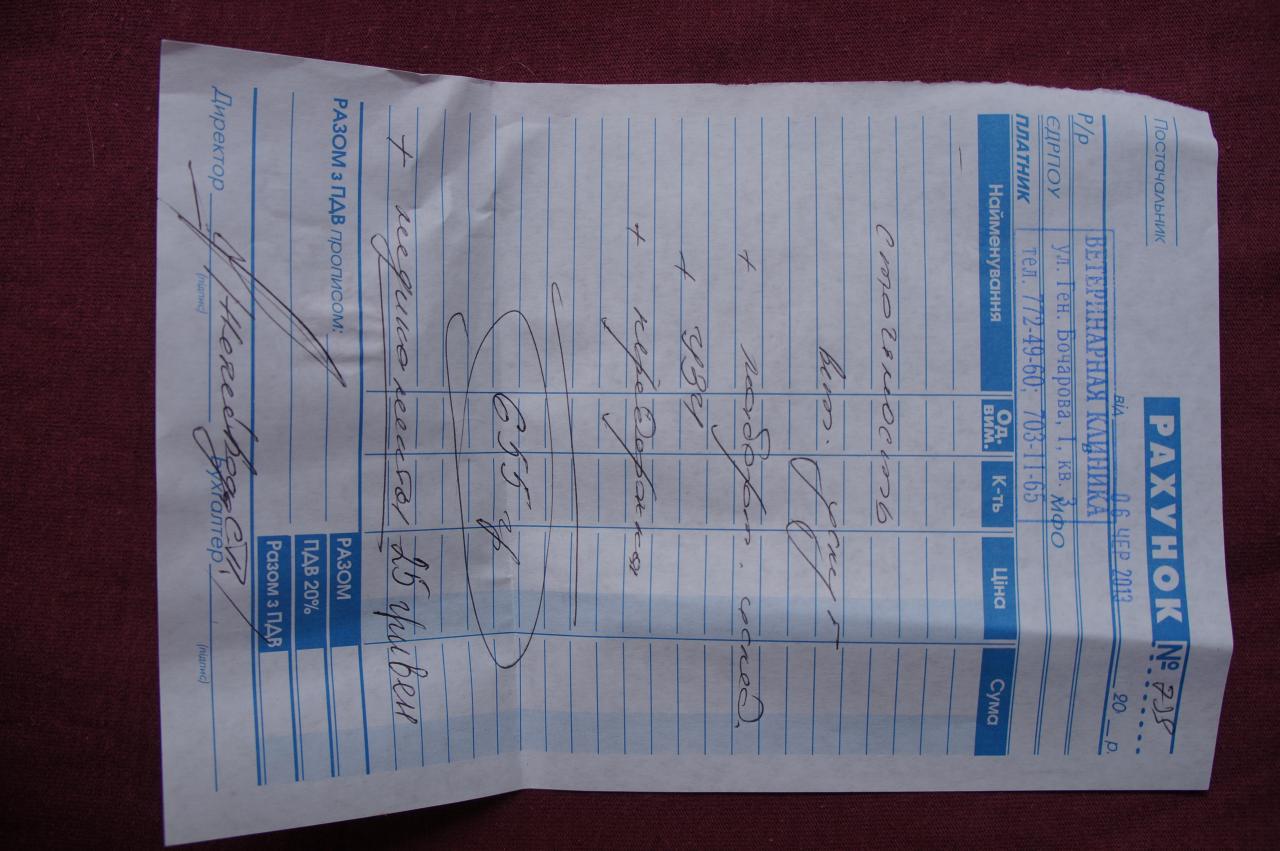 Постачальник
РАХУНОК № 738
від 06 ЧЕР 2013 20 р.
ВЕТЕРИНАРНАЯ КЛИНИКА
Р/р
ул. Ген. Бочарова, 1, кв. 3
МФО
ЄДРПОУ
тел. 772-49-60; 703-11-65
ПЛАТНИК
Найменування Од. вим. К-ть Ціна Сума
стоимость
вет. услуг
+ лаборат. исслед.
+ УЗИ
+ передержка
655 гр
+ 25 гривен
РАЗОМ з ПДВ прописом:
РАЗОМ
ПДВ 20%
Разом з ПДВ
Директор
(підпис)
Бухгалтер
(підпис)